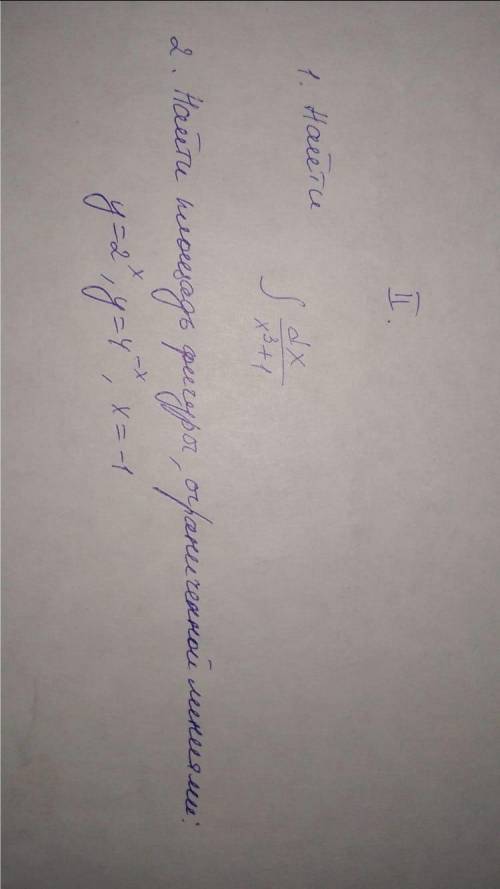 II.
1. Найти
∫ dx / x³+1
2. Найти площадь фигуры, ограниченной линиями:
y=2ˣ, y=4⁻ˣ, x=-1